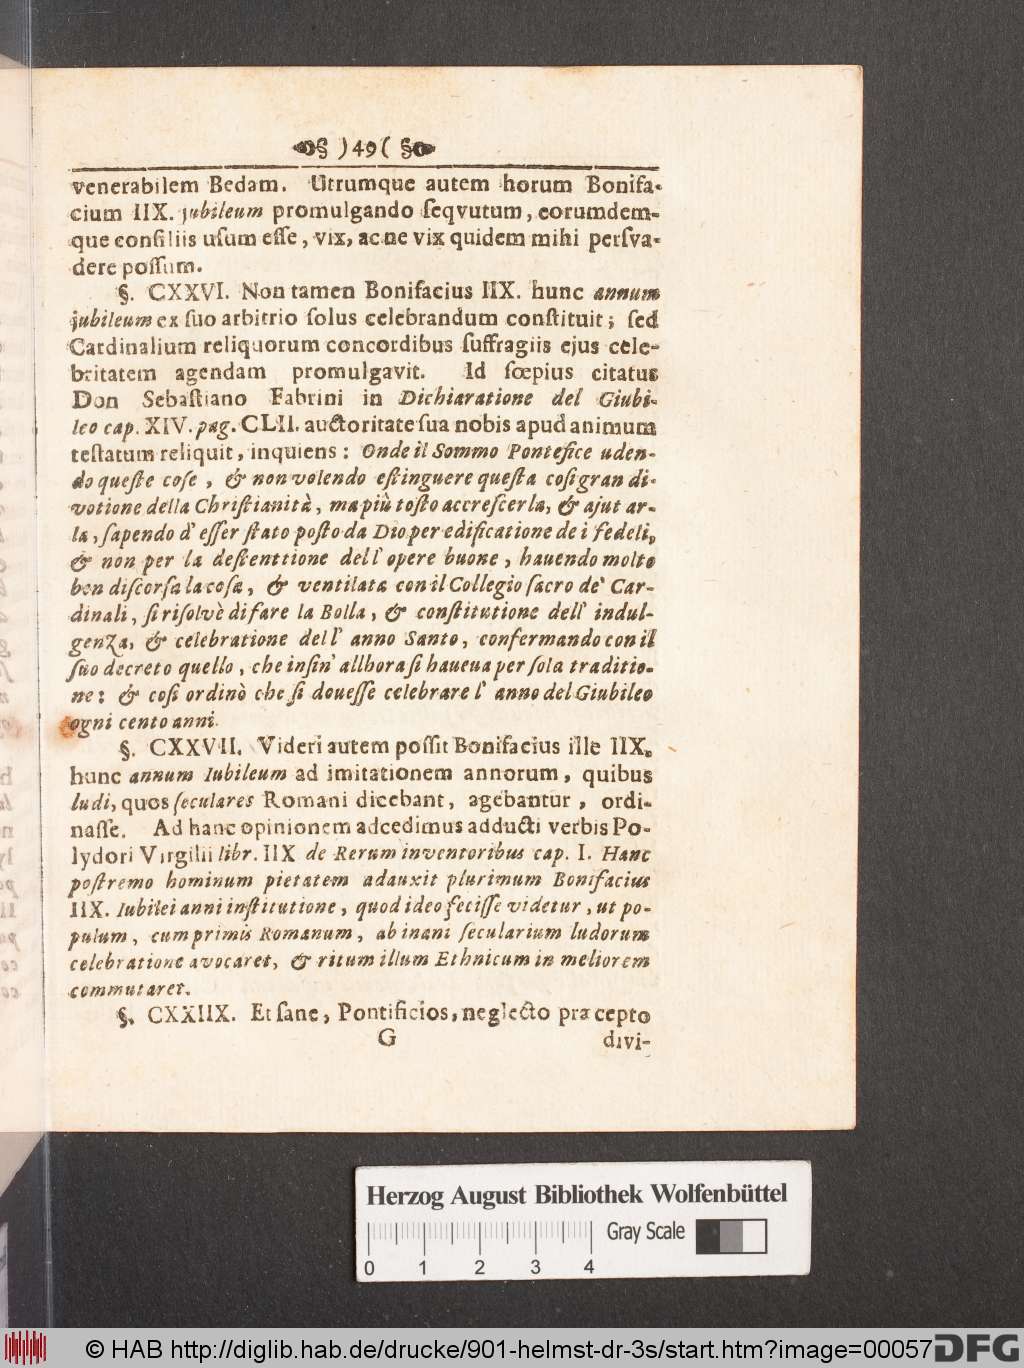 § )49( §
venerabilem Bedam. Utrumque autem horum Bonifa-
cium IIX. jubileum promulgando ſeqvutum, eorumdem-
que conſiliis uſum eſſe, vix, ac ne vix quidem mihi perſva-
dere poſſum.
§. CXXVI. Non tamen Bonifacius IIX. hunc annum
jubileum ex ſuo arbitrio ſolus celebrandum conſtituit; ſed
Cardinalium reliquorum concordibus ſuffragiis ejus cele-
britatem agendam promulgavit. Id ſœpius citatus
Don Sebaſtiano Fabrini in Dichiaratione del Giubi-
leo cap. XIV. pag. CLII. auctoritate ſua nobis apud animum
teſtatum reliquit, inquiens: Onde il Sommo Pontefice uden-
do queſte coſe, & non volendo eſtinguere queſta coſi gran di-
votione della Chriſtianità, ma più toſto accreſcerla, & ajut ar-
la, ſapendo d' eſſer ſtato poſto da Dio per edificatione de i fedeli,
& non per la deſtenttione dell' opere buone, hauendo molto
ben diſcorſa la coſa, & ventilata con il Collegio ſacro de' Car-
dinali, ſi riſolvè di fare la Bolla, & conſtitutione dell' indul-
genza, & celebratione dell' anno Santo, confermando con il
ſuo decreto quello, che inſin' allhora ſi haueua per ſola traditio-
ne: & coſi ordinò che ſi doueſſe celebrare l' anno del Giubileo
ogni cento anni.
§. CXXVII. Videri autem poſſit Bonifacius ille IIX.
hunc annum Iubileum ad imitationem annorum, quibus
ludi, quos ſeculares Romani dicebant, agebantur, ordi-
naſſe. Ad hanc opinionem adcedimus adducti verbis Po-
lydori Virgilii libr. IIX de Rerum inventoribus cap. I. Hanc
poſtremo hominum pietatem adauxit plurimum Bonifacius
IIX. Iubilei anni inſtitutione, quod ideo feciſſe videtur, ut po-
pulum, cum primis Romanum, ab inani ſecularium ludorum
celebratione avocaret, & ritum illum Ethnicum in meliorem
commutaret.
§. CXXIIX. Et ſane, Pontificios, neglecto præcepto
G divi-
Herzog August Bibliothek Wolfenbüttel
Gray Scale
0 1 2 3 4
© HAB http://diglib.hab.de/drucke/901-helmst-dr-3s/start.htm?image=00057
DFG